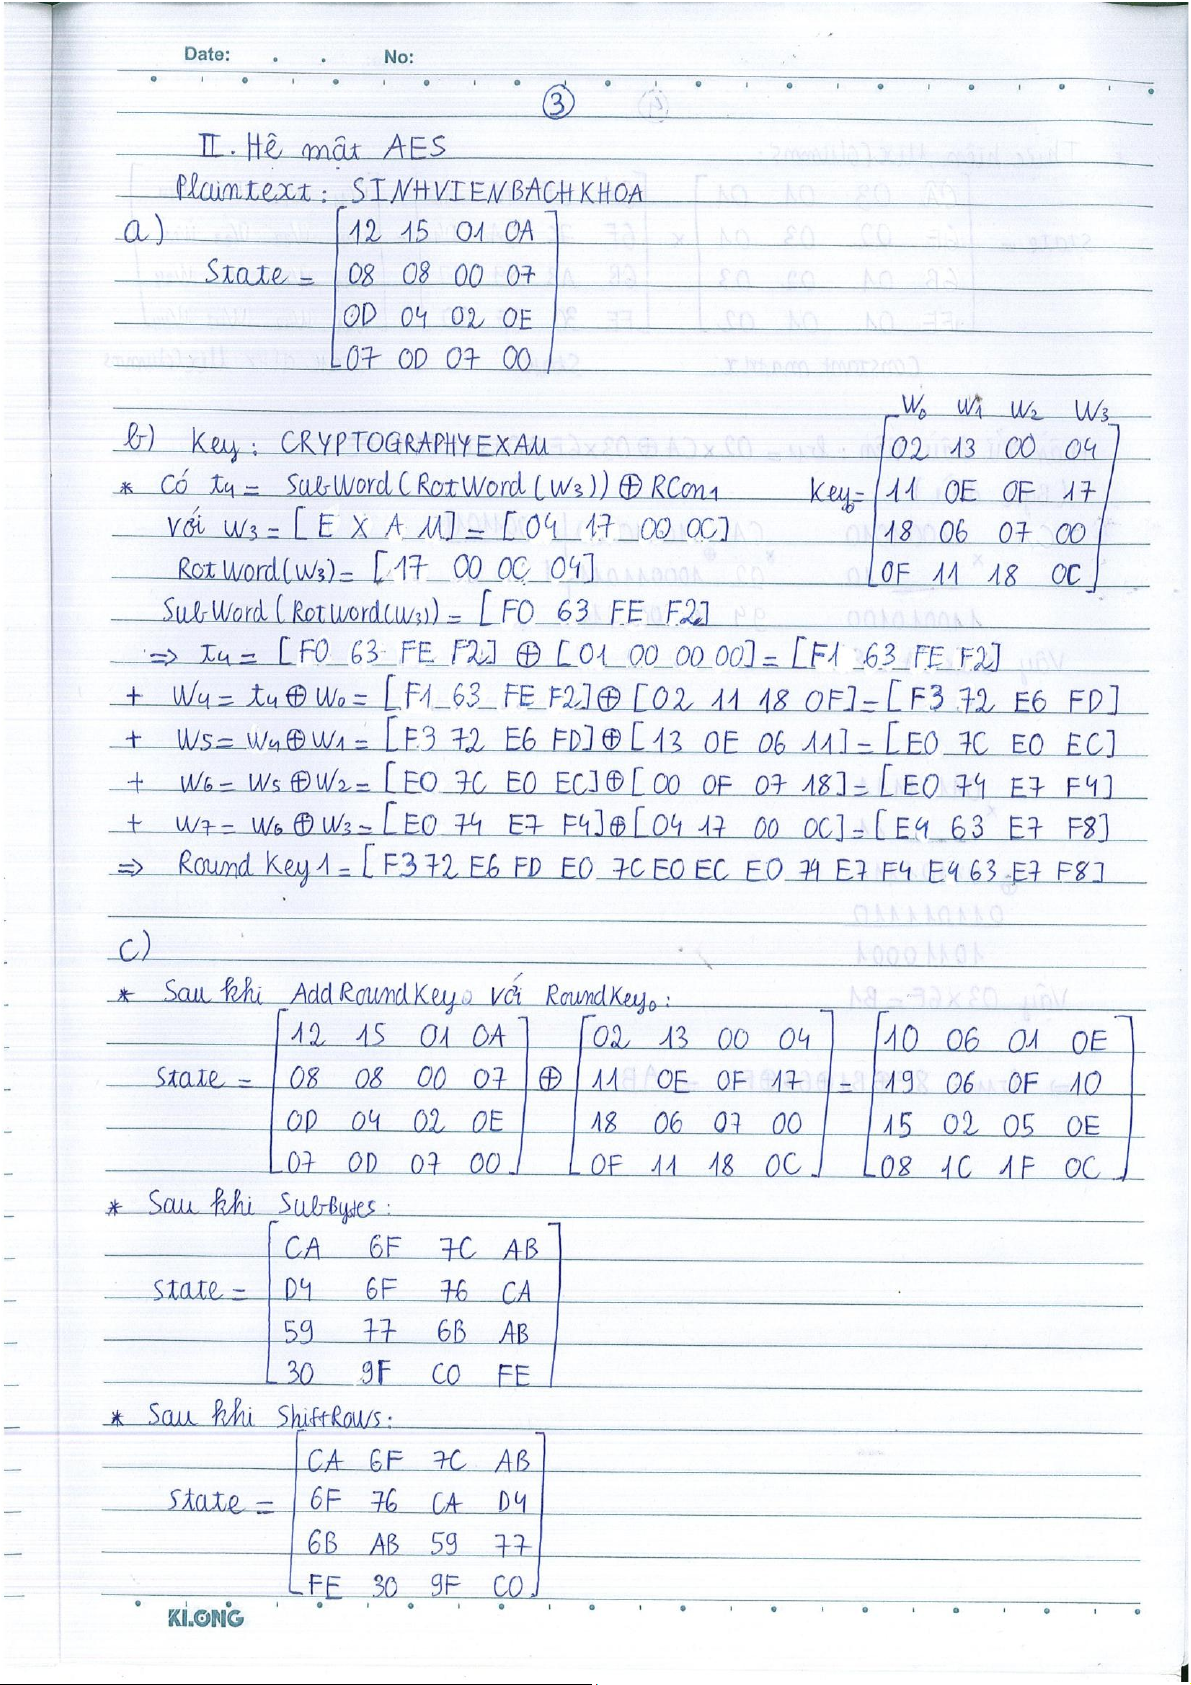 Date: . . No:
3
II. Hệ mật AES
Plaintext: SINHVIENBACHKHOA
a)
State = [12 15 01 0A
08 08 00 07
0D 04 02 0E
07 0D 07 00]
W0 W1 W2 W3
b) Key: CRYPTOGRAPHYEXAM
Key0 = [02 13 00 04
11 0E 0F 17
18 06 07 00
0F 11 18 0C]
* Có t4 = SubWord(RotWord(W3)) ⊕ RCon1
Với W3 = [E X A M] = [04 17 00 0C]
RotWord(W3) = [17 00 0C 04]
SubWord(RotWord(W3)) = [F0 63 FE F2]
=> t4 = [F0 63 FE F2] ⊕ [01 00 00 00] = [F1 63 FE F2]
+ W4 = t4 ⊕ W0 = [F1 63 FE F2] ⊕ [02 11 18 0F] = [F3 72 E6 FD]
+ W5 = W4 ⊕ W1 = [F3 72 E6 FD] ⊕ [13 0E 06 11] = [E0 7C E0 EC]
+ W6 = W5 ⊕ W2 = [E0 7C E0 EC] ⊕ [00 0F 07 18] = [E0 74 E7 F4]
+ W7 = W6 ⊕ W3 = [E0 74 E7 F4] ⊕ [04 17 00 0C] = [E4 63 E7 F8]
=> Round Key 1 = [F3 72 E6 FD E0 7C E0 EC E0 74 E7 F4 E4 63 E7 F8]
c)
* Sau khi AddRoundKey với RoundKey0:
State = [12 15 01 0A
08 08 00 07
0D 04 02 0E
07 0D 07 00] ⊕ [02 13 00 04
11 0E 0F 17
18 06 07 00
0F 11 18 0C] = [10 06 01 0E
19 06 0F 10
15 02 05 0E
08 1C 1F 0C]
* Sau khi SubBytes:
State = [CA 6F 7C AB
D4 6F 76 CA
59 77 6B AB
30 9F C0 FE]
* Sau khi ShiftRows:
State = [CA 6F 7C AB
6F 76 CA D4
6B AB 59 77
FE 30 9F C0]
KLONG